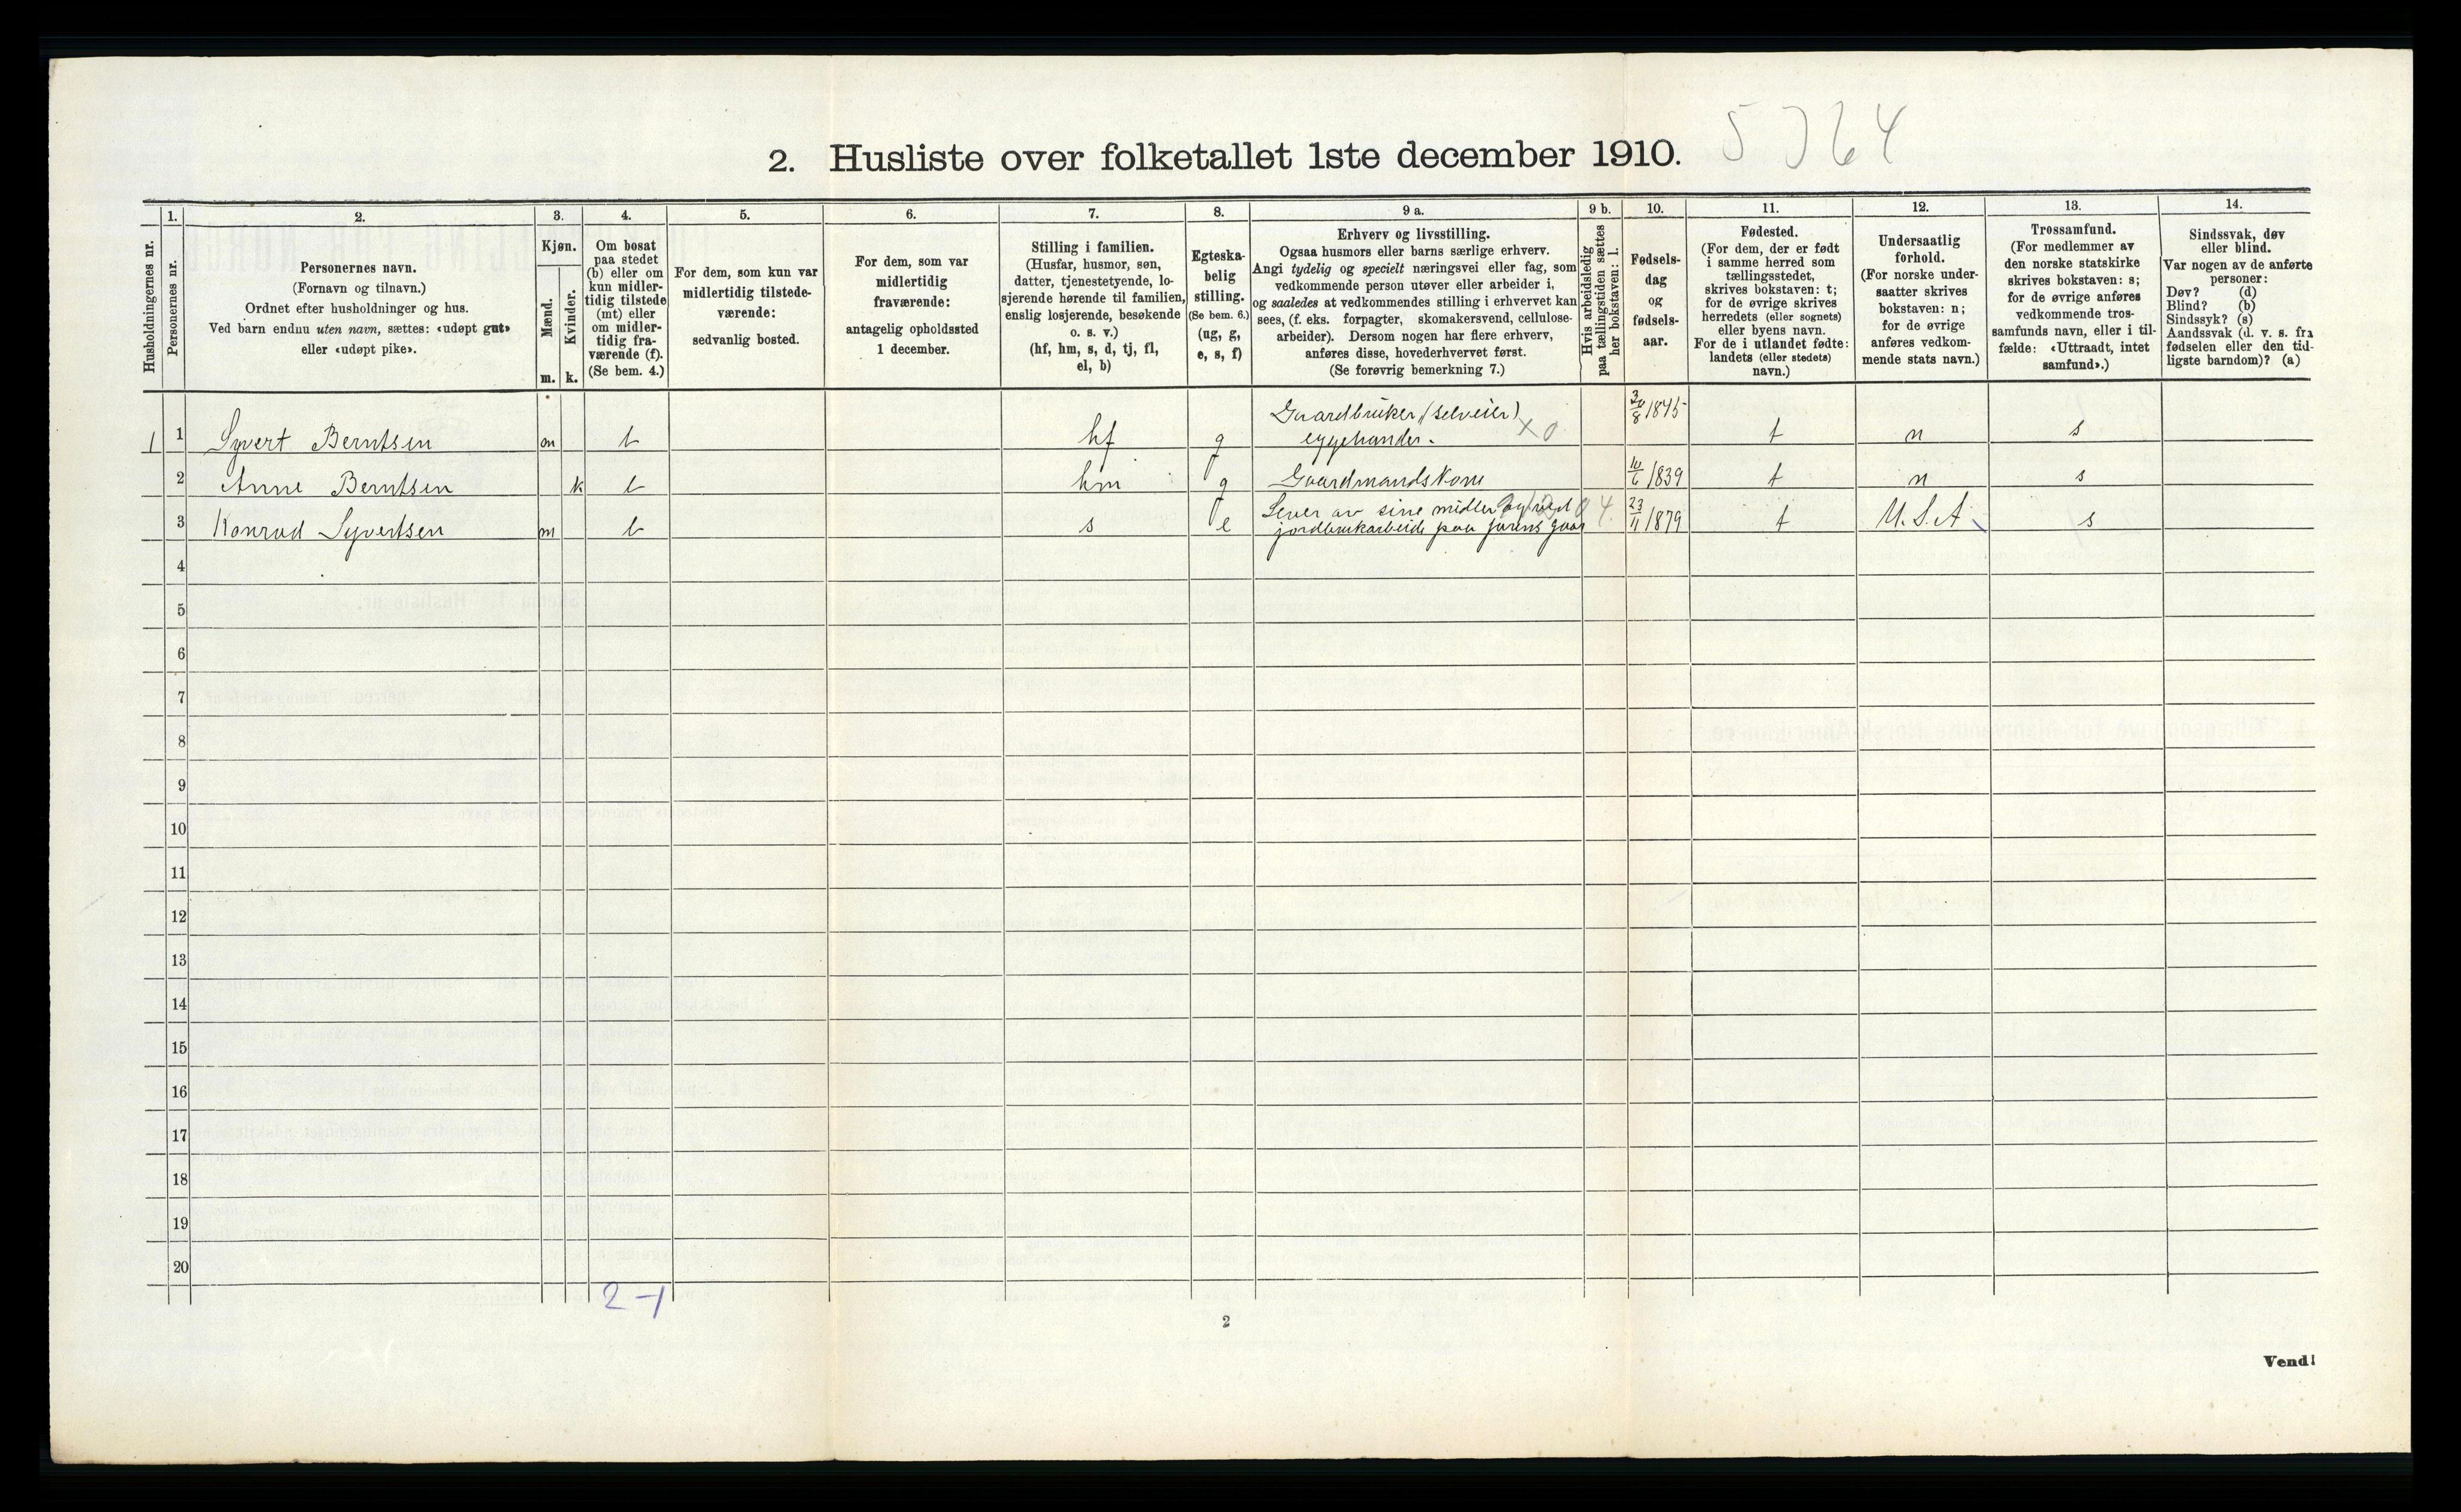 5364
2. Husliste over folketallet 1ste december 1910.
Husholdningernes nr.
1.
Personernes nr.
2.
Personernes navn.
(Fornavn og tilnavn.)
Ordnet efter husholdninger og hus.
Ved barn endnu uten navn, sættes: «udøpt gut»
eller «udøpt pike».
3.
Kjøn.
Mænd.
Kvinder.
m. k.
4.
Om bosat
paa stedet
(b) eller om
kun midler-
tidig tilstede
(mt) eller
om midler-
tidig fra-
værende (f).
(Se bem. 4.)
5.
For dem, som kun var
midlertidig tilstede-
værende:
sedvanlig bosted.
6.
For dem, som var
midlertidig
fraværende:
antagelig opholdssted
1 december.
7.
Stilling i familien.
(Husfar, husmor, søn,
datter, tjenestetyende, lo-
sjerende hørende til familien,
enslig losjerende, besøkende
o. s. v.)
(hf, hm, s, d, tj, fl,
el, b)
8.
Egteska-
belig
stilling.
(Se bem. 6.)
(ug, g,
e, s, f)
9 a.
Erhverv og livsstilling.
Ogsaa husmors eller barns særlige erhverv.
Angi tydelig og specielt næringsvei eller fag, som
vedkommende person utøver eller arbeider i,
og saaledes at vedkommendes stilling i erhvervet kan
sees, (f. eks. forpagter, skomakersvend, cellulose-
arbeider). Dersom nogen har flere erhverv,
anføres disse, hovederhvervet først.
(Se forøvrig bemerkning 7.)
9 b.
Hvis arbeidsledig
paa tællingstiden sættes
her bokstaven: l.
10.
Fødsels-
dag
og
fødsels-
aar.
11.
Fødested.
(For dem, der er født
i samme herred som
tællingsstedet,
skrives bokstaven: t;
for de øvrige skrives
herredets (eller sognets)
eller byens navn.
For de i utlandet fødte:
landets (eller stedets)
navn.)
12.
Undersaatlig
forhold.
(For norske under-
saatter skrives
bokstaven: n;
for de øvrige
anføres vedkom-
mende stats navn.)
13.
Trossamfund.
(For medlemmer av
den norske statskirke
skrives bokstaven: s;
for de øvrige anføres
vedkommende tros-
samfunds navn, eller i til-
fælde: «Uttraadt, intet
samfund».)
14.
Sindssvak, døv
eller blind.
Var nogen av de anførte
personer:
Døv? (d)
Blind? (b)
Sindssyk? (s)
Aandssvak (d. v. s. fra
fødselen eller den tid-
ligste barndom)? (a)
1 1 Syvert Berntsen m b hf g Gaardbruker (selveier) eggehandler. x 0 8 1845 t n s
2 Anne Berntsen k b hm g Gaardmandskone 10/6 1839 t n s
3 Konrad Syvertsen m b s e Lever av sine midler og ved jordbrukarbeide paa farens gaar 23/11 1879 t U.S.A s
4
5
6
7
8
9
10
11
12
13
14
15
16
17
18
19
20
2-1
2
Vend!